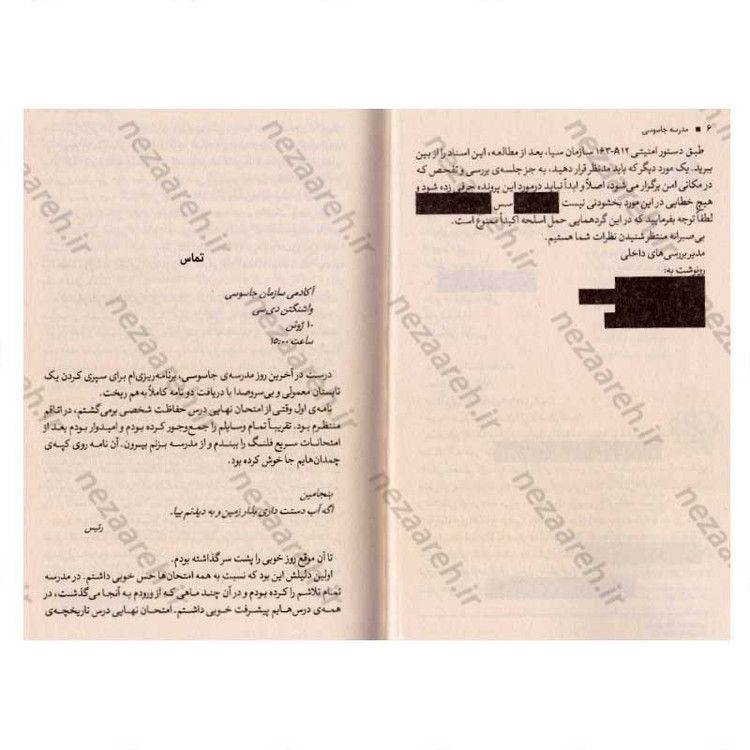 ۶ ■ مدرسه جاسوسی
طبق دستور امنیتی ۱۶۳-A۱۲ سازمان سیا، بعد از مطالعه، این اسناد را از بین
ببرید. یک مورد دیگر که باید مدنظر قرار دهید، به جز جلسه‌ی بررسی و تفحص که
در مکانی امن برگزار می‌شود، اصلاً و ابداً نباید درمورد این پرونده حرفی زده شود و
هیچ خطایی در این مورد بخشودنی نیست سس
لطفاً توجه بفرمایید که در این گردهمایی حمل اسلحه اکیداً ممنوع است.
بی‌صبرانه منتظر شنیدن نظرات شما هستیم.
مدیر بررسی‌های داخلی
رونوشت به:
تماس
آکادمی سازمان جاسوسی
واشنگتن دی‌سی
۱۰ ژوئن
ساعت ۱۵:۰۰
درست در آخرین روز مدرسه‌ی جاسوسی، برنامه‌ریزی‌ام برای سپری کردن یک
تابستان معمولی و بی‌سروصدا با دریافت دو نامه کاملاً به‌هم ریخت.
نامه‌ی اول وقتی از امتحان نهایی درس حفاظت شخصی برمی‌گشتم، در اتاقم
منتظرم بود. تقریباً تمام وسایلم را جمع‌وجور کرده بودم و امیدوار بودم بعد از
امتحانات سریع فلنگ را ببندم و از مدرسه بزنم بیرون. آن نامه روی کپه‌ی
چمدان‌هایم جا خوش کرده بود.
بنجامین
اگه آب دستت داری بذار زمین و به دیدنم بیا.
رئیس
تا آن موقع روز خوبی را پشت سر گذاشته بودم.
اولین دلیلش این بود که نسبت به همه امتحان‌ها حس خوبی داشتم. در مدرسه
تمام تلاشم را کرده بودم و در آن چند ماهی که از ورودم به آنجا می‌گذشت، در
همه‌ی درس‌هایم پیشرفت خوبی داشتم. امتحان نهایی درس تاریخچه‌ی
nezaareh.ir